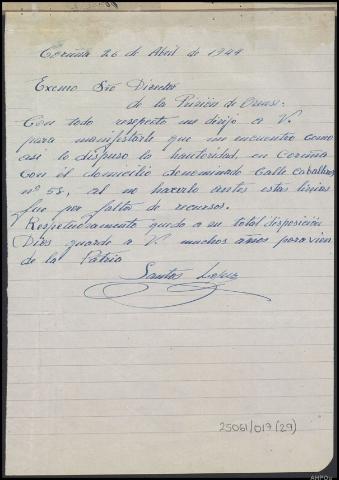 Coruña 26 de Abril de 1944
Excmo Sño Director
de la Prisión de Orense:
Con todo respecto me dirijo a V.
para manifestarle que me encuentro como
asi lo dispuso la hautoridad, en Coruña
con el domicilio denominado Calle Caballeros
nº 53, al no hacerlo antes estas lineas
fue por falta de recursos.
Respetuosamente quedo a su total disposición
Dios guarde a V. muchos años para vien
de la Patria
Santos Lopez
25061/017(29)
AHPOu